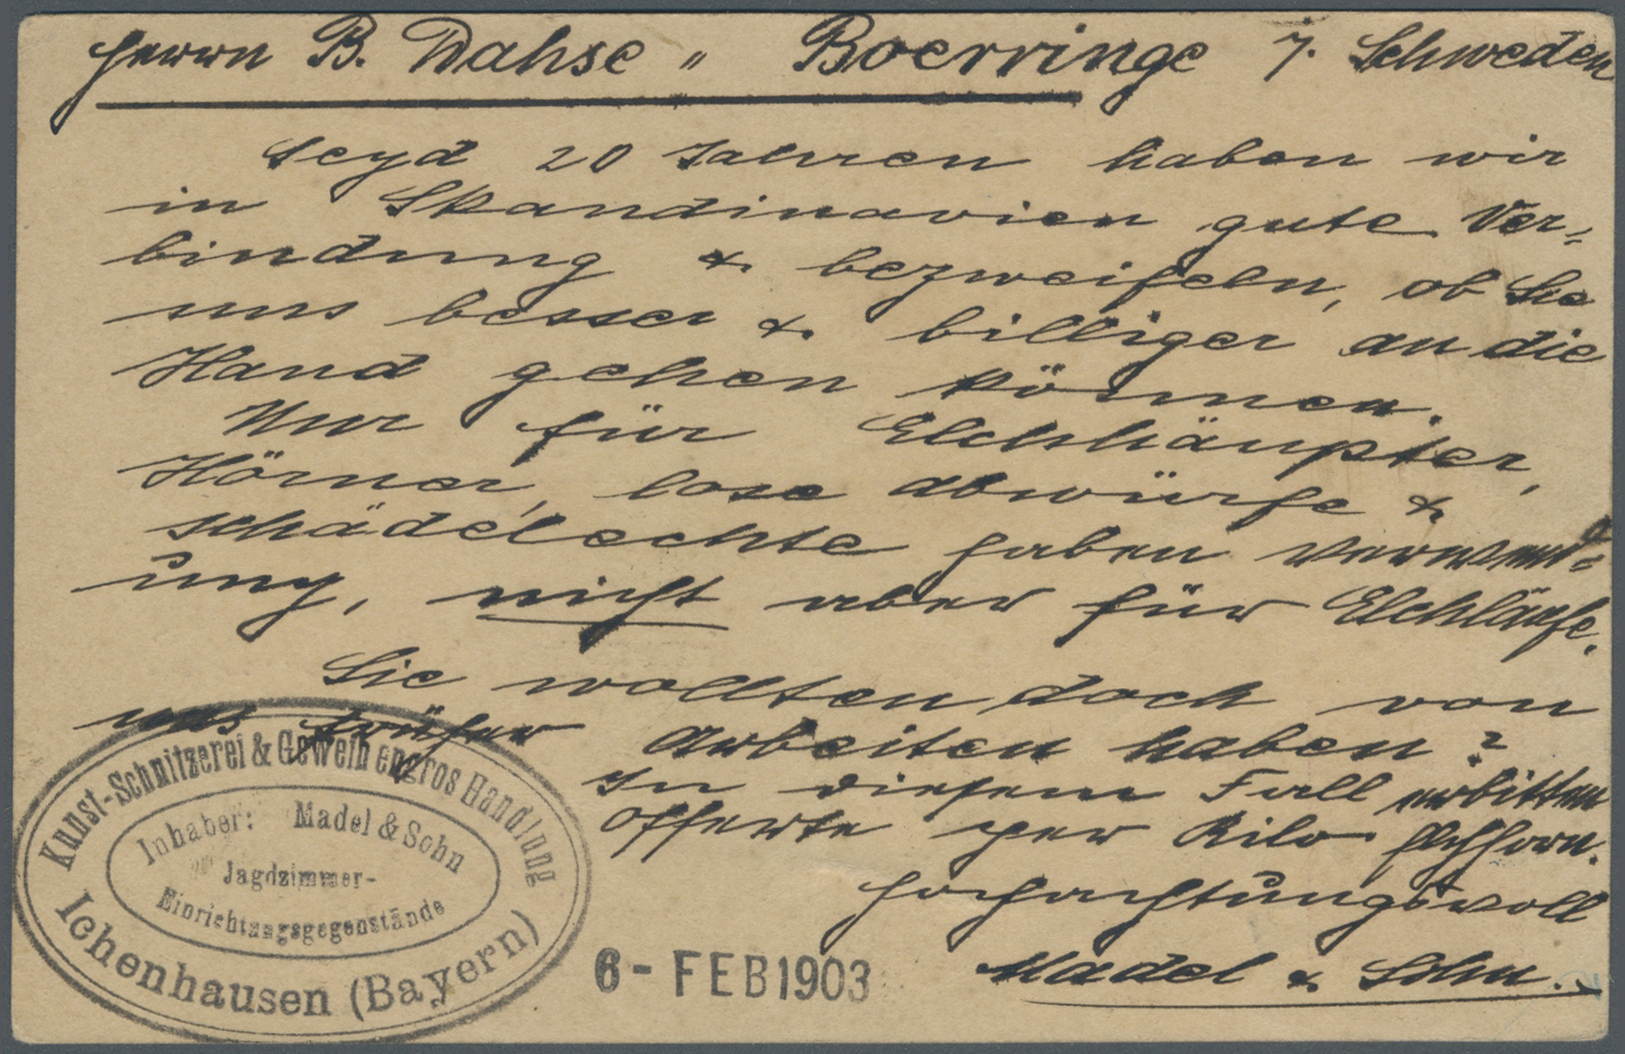 Herrn B. Dahse " Boerringe i. Schweden
Seyd 20 Jahren haben wir
in Skandinavien gute Ver-
bindung & bezweifeln, ob Sie
uns besser & billiger an die
Hand gehen können.
Nur für Elchhäupter,
Hörner, lose abwürfe &
schädelechte haben Verwert-
ung, nicht aber für Elchläufe.
Sie wollten doch von
uns früher Arbeiten haben?
In diesem Fall erbitten
Offerte per Kilo
Hochachtungsvoll
Madel & Sohn.
Kunst-Schnitzerei & Geweih engros Handlung
Inhaber: Madel & Sohn
Jagdzimmer-
Einrichtungsgegenstände
Ichenhausen (Bayern)
6 - FEB 1903